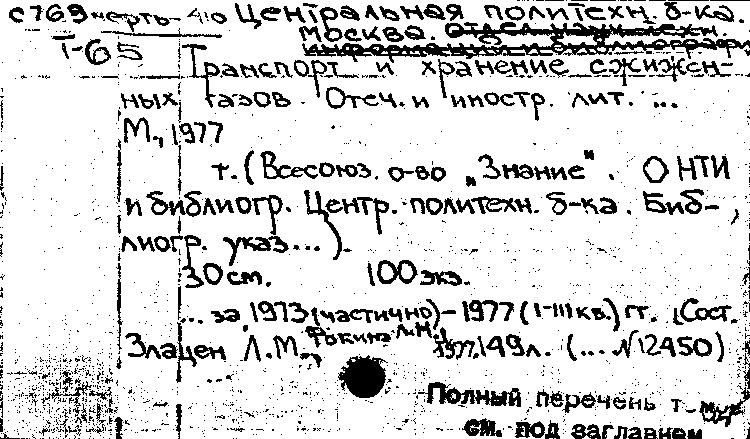 с769 нефть-410 Центральная политехн. б-ка.
Т-65 Москва. Отдел научн.-техн.
информации и библиографи
Транспорт и хранение сжижен-
ных газов. Отеч. и иностр. лит. ...
М., 1977
т. (Всесоюз. о-во „Знание". ОНТИ
и библиогр. Центр. политехн. б-ка. Биб-
лиогр. указ...).
30 см. 100 экз.
... за 1973 (частично) - 1977 (I-III кв.) гг. [Сост.
Злацен Л.М., Фокина Л.М.]
1977. 149 л. (... N 12450)
...
Полный перечень т-
см. под заглавием